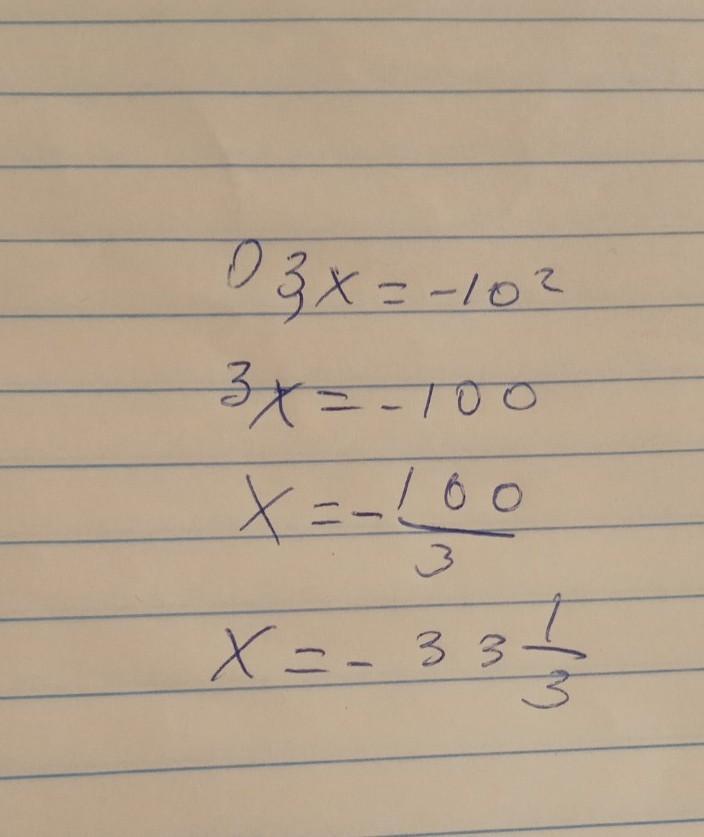 0 3x = -10²
3x = -100
x = -100/3
x = -33 1/3